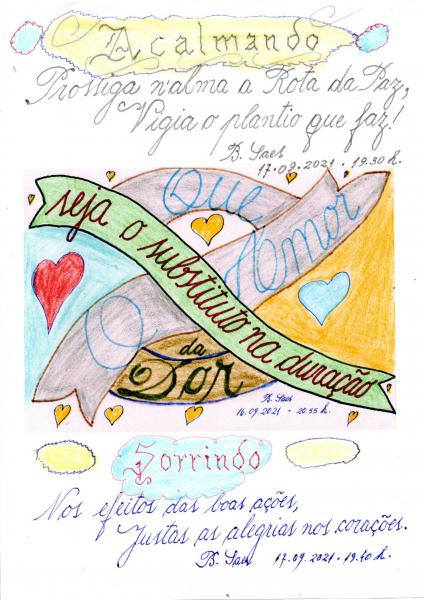 Acalmando
Prossiga n'alma a Rota da Paz,
Vigia o plantio que faz!
B. Saes
17.09.2021 · 19.30 h.
Que
O Amor
seja o substituto na duração
da
Dor
B. Saes
16.09.2021 · 20.55 h.
Sorrindo
Nos efeitos das boas ações,
Justas as alegrias nos corações.
B. Saes 17.09.2021 · 19.40 h.